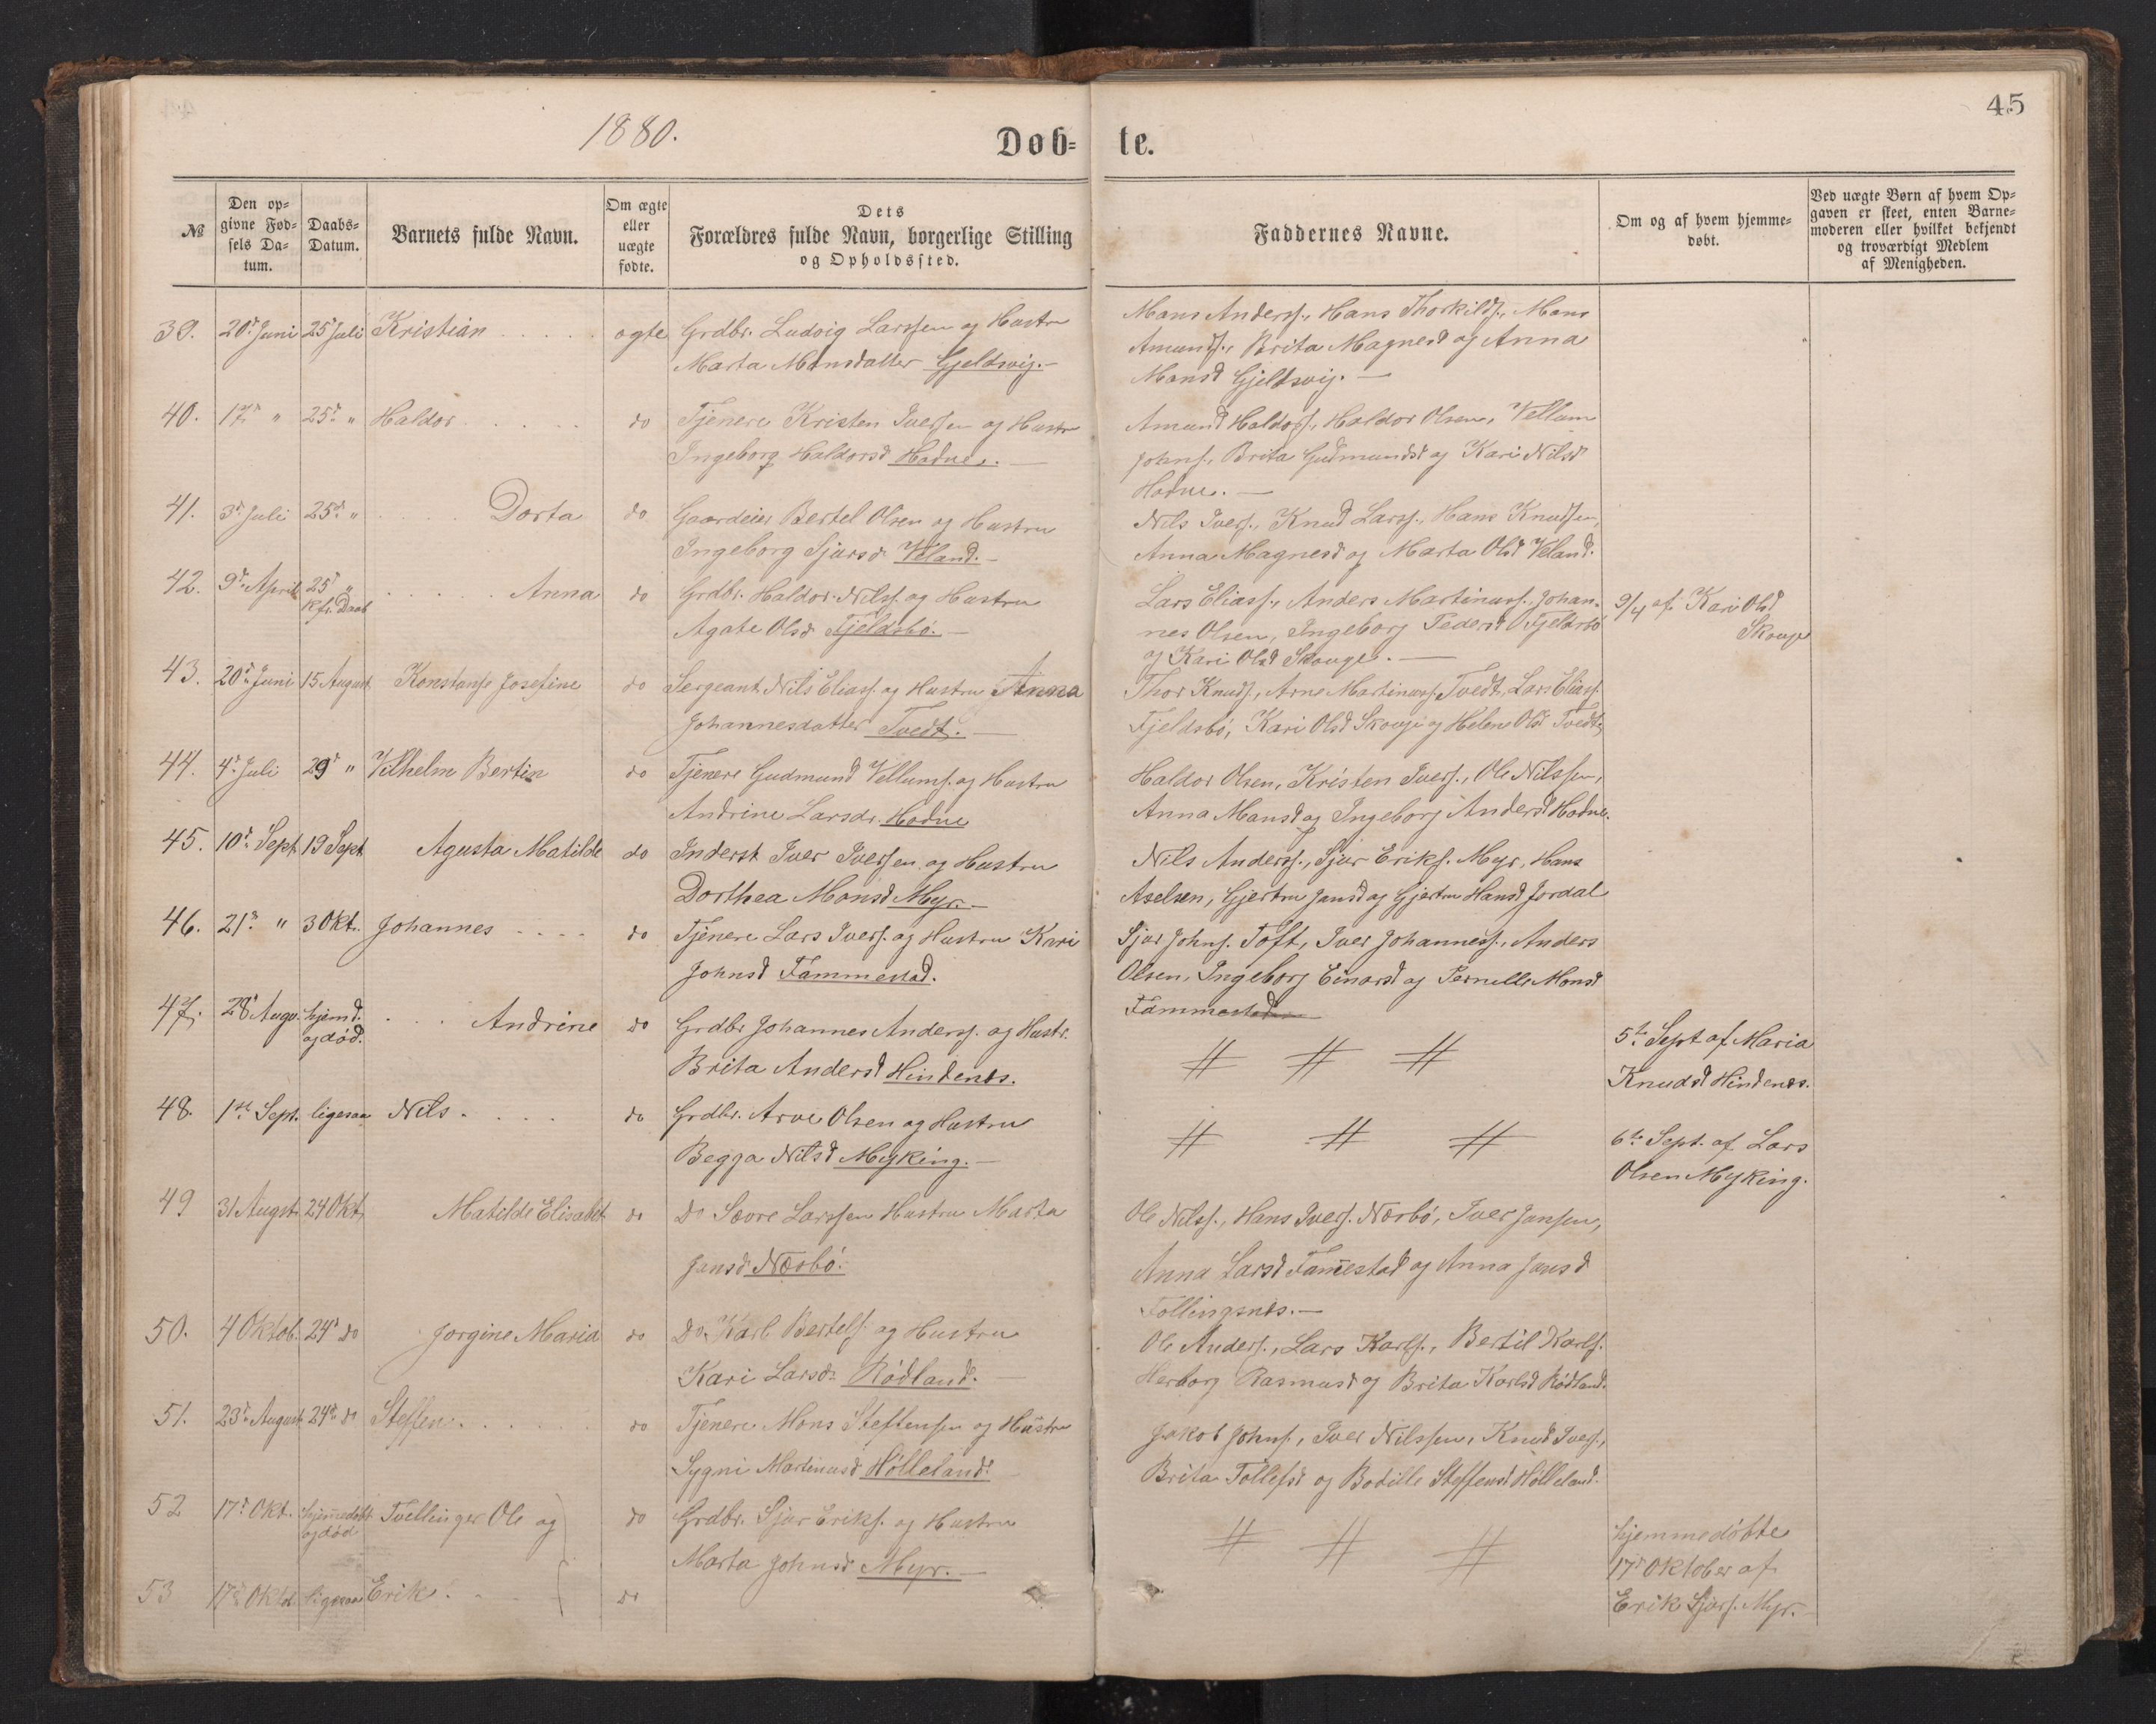 45
1880.
Døb= te.
№
Den op=
givne Fød=
sels Da=
tum.
Daabs=
Datum.
Barnets fulde Navn.
Om ægte
eller
uægte
fødte.
Dets
Forældres fulde Navn, borgerlige Stilling
og Opholdssted.
Faddernes Navne.
Om og af hvem hjemme=
døbt.
Ved uægte Børn af hvem Op=
gaven er skeet, enten Barne=
moderen eller hvilket bekjendt
og troværdigt Medlem
af Menigheden.
39. 20de Juni 25 Juli Kristian ægte Grdbr. Ludvig Larssen og Hustru
Marta Monsdatter Gjeldsvig.
Mons Anderss., Hans Thorkilds., Mons
Amunds., Brita Magnesd og Anna
Monsd Gjeldsvig.
40. 17de " 25de " Haldor do Tjenere Kristen Iversen og Hustru
Ingeborg Haldorsd Hodne.
Amund Haldors., Haldor Olsen, Vellum
Johns., Brita Gudmundsd og Kari Nilsd
Hodne.
41. 3de Juli 25de " Dorta do Gaardeier Bertel Olsen og Hustru
Ingeborg Sjursd. Veland.
Nils Ivers., Knud Larss., Hans Knudsen,
Anna Magnesd og Marta Olsd Veland.
42. 9de April 25de " Anna do Grdbr. Haldor Nilss. og Hustru
Kfr. Daab
Agate Olsd. Fjeldsbø.
Lars Eliass., Anders Martinuss., Johan-
nes Olsen, Ingeborg Pedersd Fjeldsbø
og Kari Olsd Skouge.
9/4 af Kari Olsd
Skouge
43. 20de Juni 15 August Konstanse Josefine do Sergeant Nils Eliass. og Hustru Anna
Johannesdatter Tvedt.
Thor Knuds., Arne Martinuss. Tvedt, Lars Eliass.
Fjeldsbø, Kari Olsd Skouge og Helene Olsd Tvedt.
44. 4de Juli 29de " Vilhelm Bertin do Tjenere Gudmund Vellums. og Hustru
Andrine Larsdr. Hodne
Haldor Olsen, Kristen Ivers., Ole Nilssen,
Anna Monsd og Ingeborg Andersd Hodne.
45. 10de Sept. 19 Sept Agusta Matilde do Inderst Iver Iversen og Hustru
Dorthea Monsd Myr.
Nils Anderss., Sjur Eriks. Myr, Hans
Axelsen, Gjertru Jansd og Gjertru Hansd Jordal
46. 21de " 3 Okt. Johannes do Tjenere Lars Ivers. og Hustru Kari
Johnsd Fammestad.
Sjur Johns. Toft, Iver Johanness., Anders
Olsen, Ingeborg Einarsd og Pernille Monsd
Fammestad
47. 28de Augu. hjemd. Andrine do Grdbr Johannes Anderss. og Hustr.
og død.
Brita Andersd Hindenes.
# # #
5te Sept af Maria
Knudsd Hindenes.
48. 1ste Sept. ligesaa Nils do Grdbr. Arve Olsen og Hustru
Begga Nilsd Myking.
# # #
6te Sept. af Lars
Olsen Myking.
49 31 Augst. 24 Okt. Matilde Elisabet do Do Sævre Larssen Hustru Marta
Jansd. Nærbø.
Ole Nilss., Hans Ivers. Nærbø, Iver Jansen,
Anna Larsd Fam̅estad og Anna Jansd
Tollingsnes.
50. 4 Oktob. 24de do Jorgine Maria do Do Karl Bertels. og Hustru
Kari Larsd. Rødland.
Ole Anders., Lars Karls., Bertil Karls.
Herborg Rasmusd og Brita Karlsd Rødland.
51. 23de August 24de do Steffen do Tjenere Mons Steffensen og Hustru
Sygni Martinusd Hølleland.
Jakob Johns., Iver Nilssen, Knud Ivers.,
Brita Tollefsd og Bodille Steffensd Hølleland.
52 17de Okt. hjem̅edøbt Tvillinger Ole og do Grdbr. Sjur Eriks. og Hustru
og død
Marta Johnsd. Myr.
# # #
hjemmedøbte
17de Oktober af
Erik Sjurs. Myr.
53 17de Oktob ligesaa Erik do